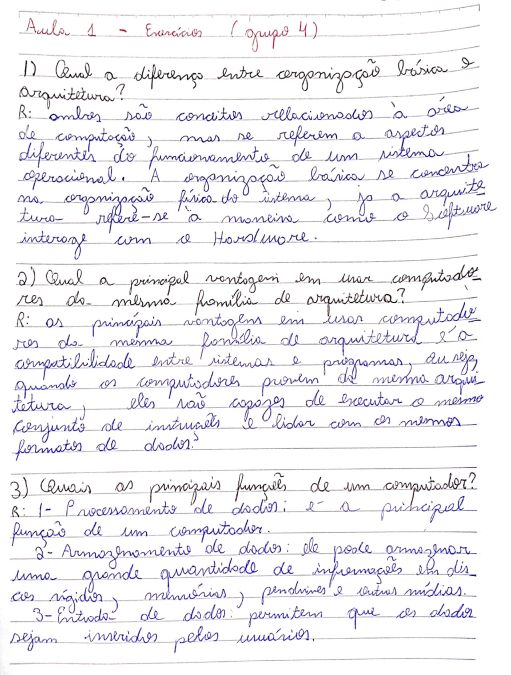 Aula 1 - Exercícios (grupo 4)
1) Qual a diferença entre organização básica e
arquitetura?
R: ambos são conceitos relacionados à área
de computação, mas se referem a aspectos
diferentes do funcionamento de um sistema
operacional. A organização básica se concentra
na organização física do sistema, ja a arquite
tura refere-se à maneira como o Software
interage com o Hardware.
2) Qual a principal vantagem em usar computado-
res da mesma família de arquitetura?
R: as principais vantagens em usar computado
res da mesma família de arquitetura é a
compatibilidade entre sistemas e programas, ou seja,
quando os computadores provem da mesma arqui-
tetura, eles são capazes de executar o mesmo
conjunto de instruções e lidar com os mesmos
formatos de dados.
3) Quais as principais funções de um computador?
R: 1- Processamento de dados: é a principal
função de um computador.
2- Armazenamento de dados: ele pode armazenar
uma grande quantidade de informações em dis
cos rígidos, memórias, pendrives e outras mídias.
3- Entrada de dados: permitem que os dados
sejam inseridos pelos usuários.